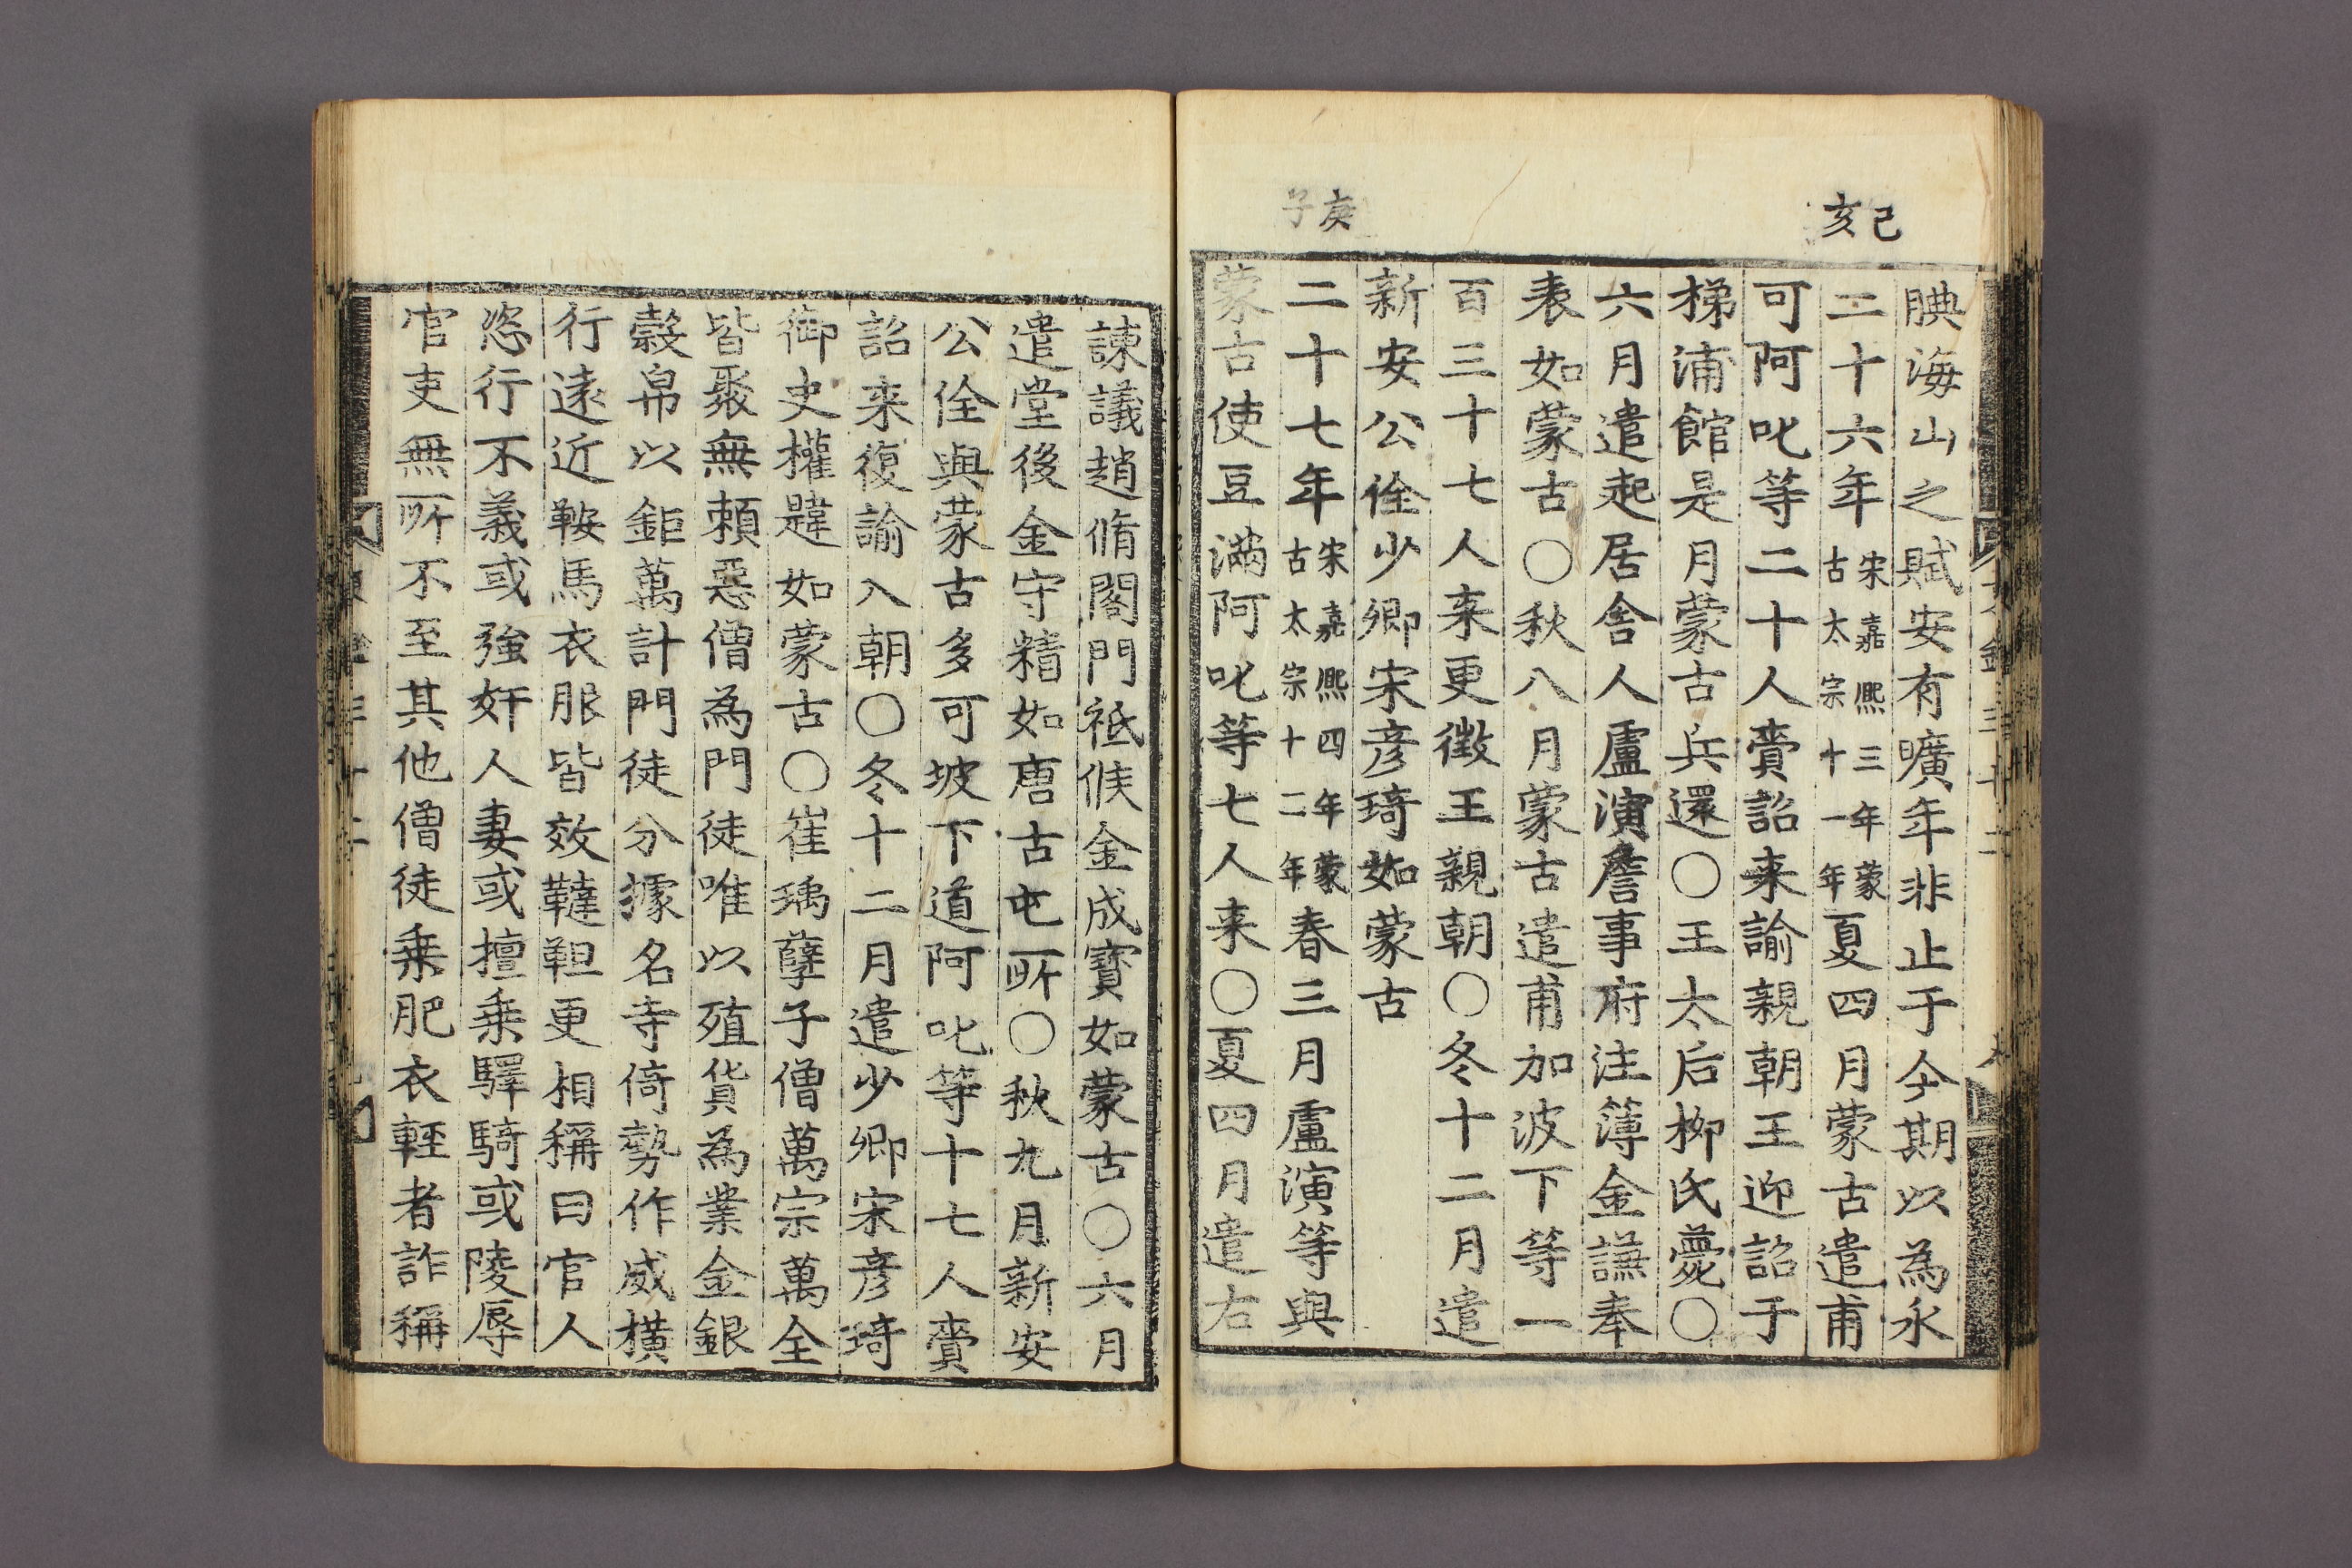 己亥
腆海山之賦安有曠年非止于今期以為永
二十六年宋嘉熙三年蒙古太宗十一年夏四月蒙古遣甫
可阿叱等二十人賫詔来諭親朝王迎詔于
梯浦館是月蒙古兵還〇王太后柳氏薨〇
六月遣起居舎人盧演詹事府注簿金謙奉
表如蒙古〇秋八月蒙古遣甫加波下等一
百三十七人来更徴王親朝〇冬十二月遣
新安公佺少卿宋彦琦如蒙古
庚子
二十七年宋嘉熙四年蒙古太宗十二年春三月盧演等與
蒙古使豆滿阿叱等七人来〇夏四月遣右
諫議趙脩閤門祗候金成寳如蒙古〇六月
遣堂後金守精如唐古屯所〇秋九月新安
公佺與蒙古多可坡下道阿叱等十七人賫
詔来復諭入朝〇冬十二月遣少卿宋彦琦
御史權韙如蒙古〇崔瑀孽子僧萬宗萬全
皆聚無頼惡僧為門徒唯以殖貨為業金銀
穀帛以鉅萬計門徒分據名寺倚勢作威横
行遠近鞍馬衣服皆效韃靼更相稱曰官人
恣行不義或強奸人妻或擅乗驛騎或陵辱
官吏無所不至其他僧徒乗肥衣輕者詐稱